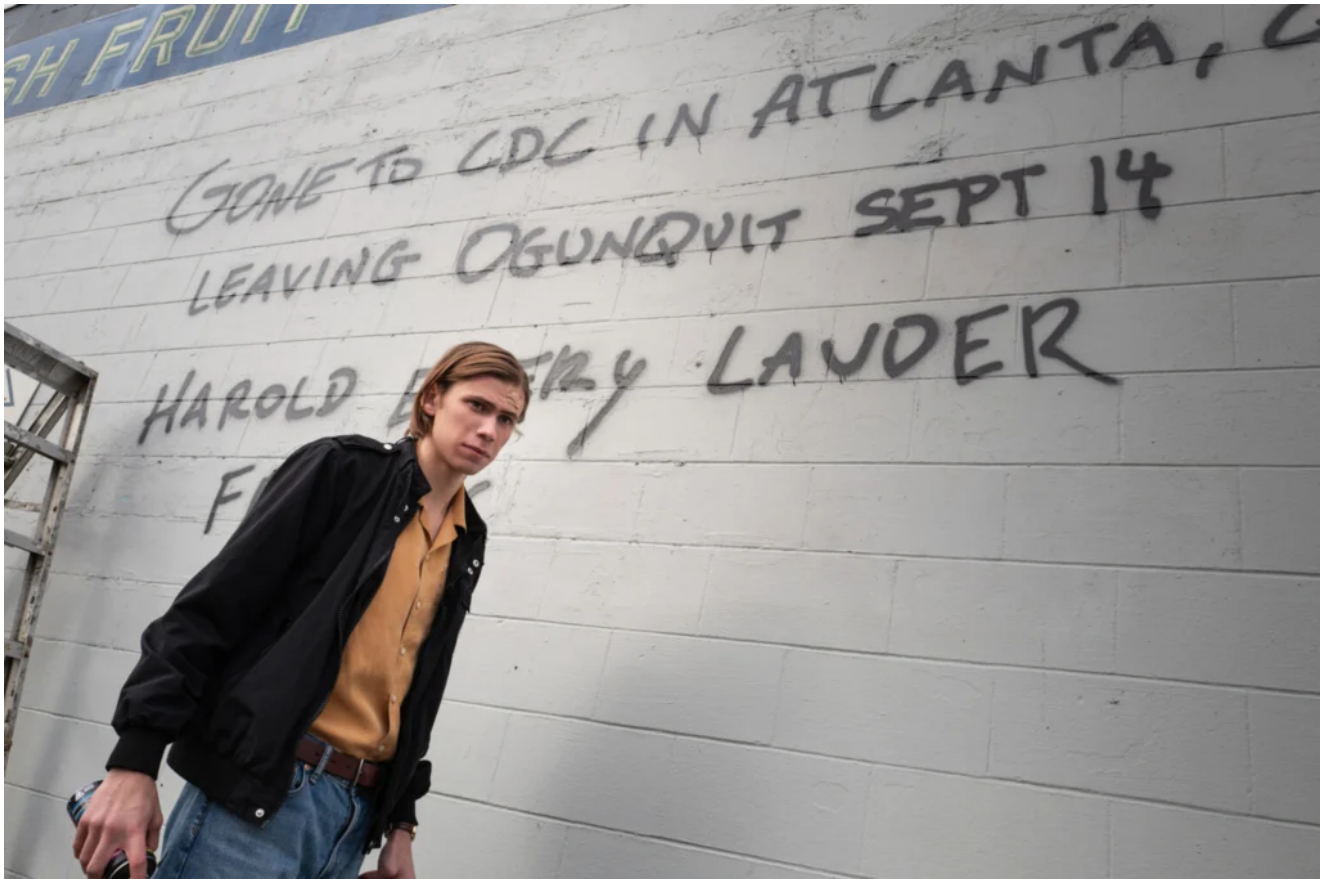 SH FRUIT
GONE TO CDC IN ATLANTA, G
LEAVING OGUNQUIT SEPT 14
HAROLD E ERY LAUDER
F